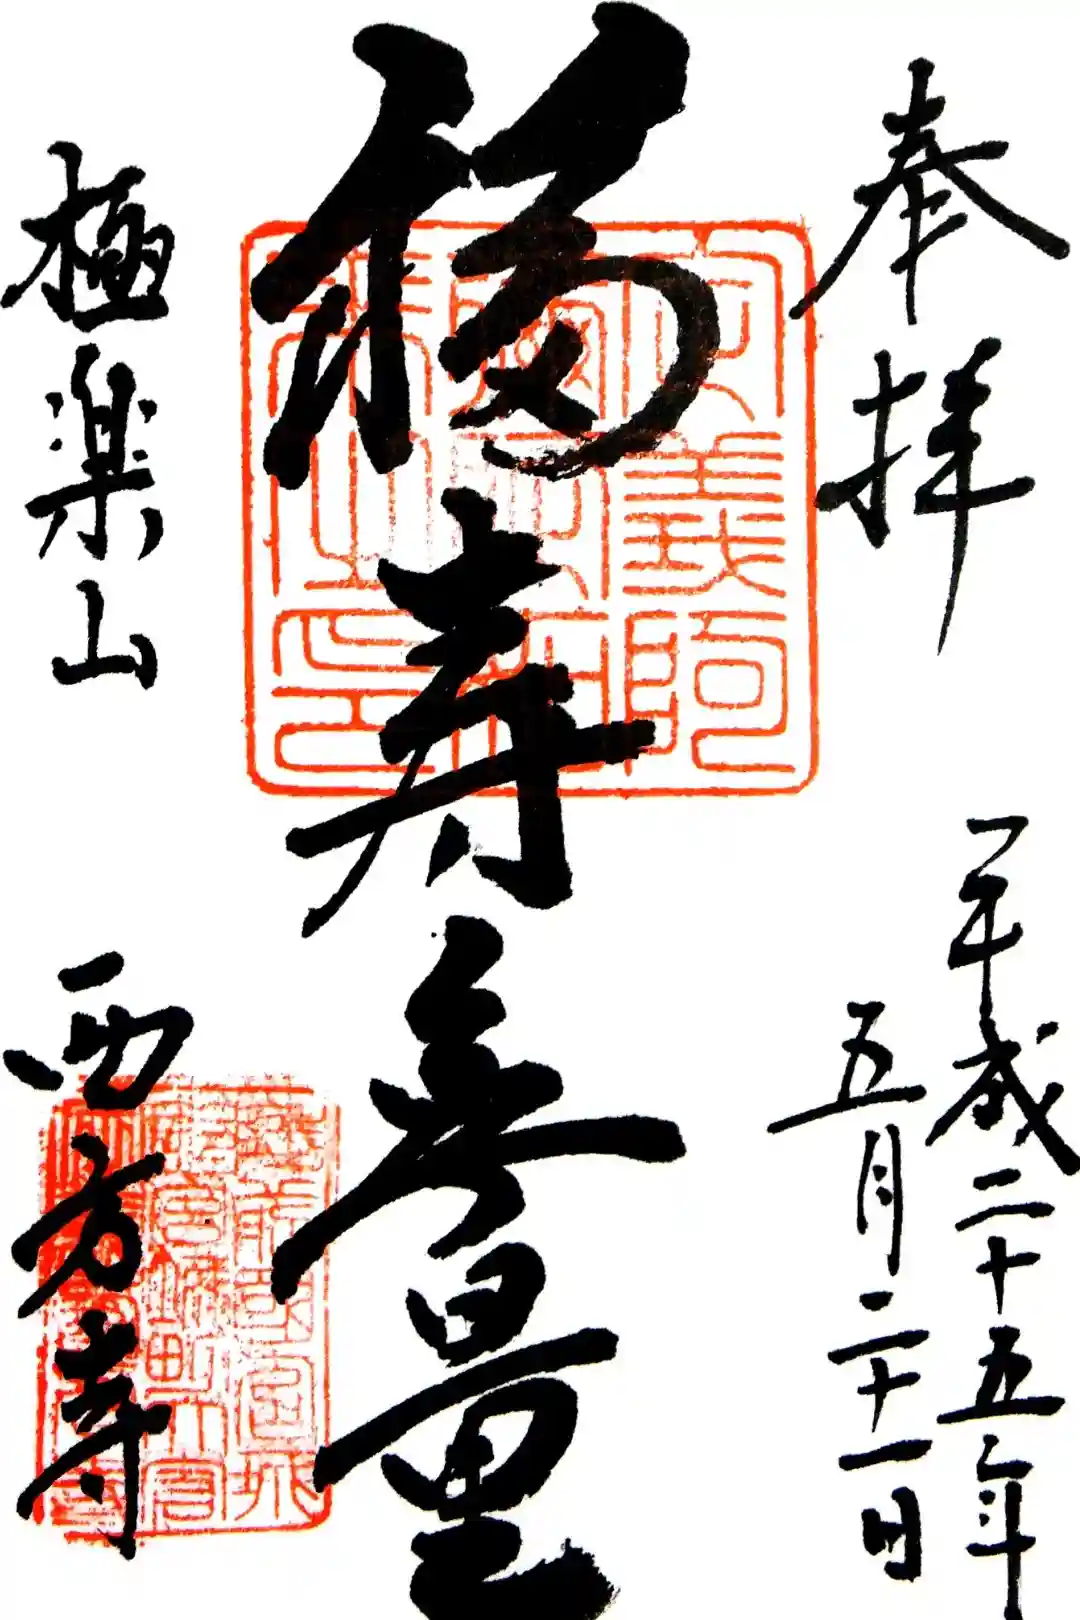 奉拝
平成二十五年
五月二十一日
福寿無量
極楽山
西方寺